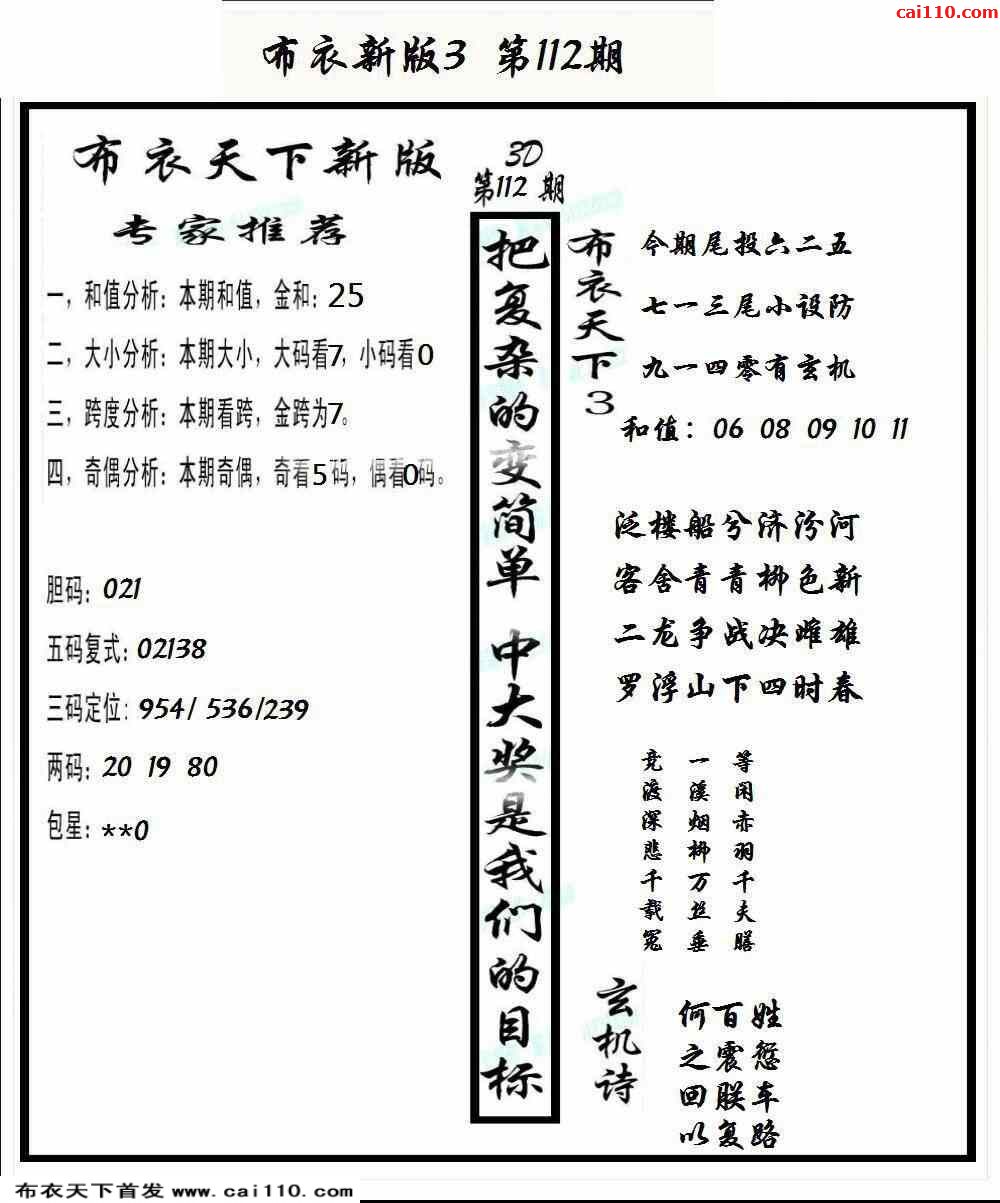 cai110.com
布衣新版3 第112期
布衣天下新版
专家推荐
一，和值分析：本期和值，金和：25
二，大小分析：本期大小，大码看7，小码看0
三，跨度分析：本期看跨，金跨为7。
四，奇偶分析：本期奇偶，奇看5码，偶看0码。
胆码：021
五码复式：02138
三码定位：954/ 536/239
两码：20 19 80
包星：**0
3D
第112 期
把复杂的变简单 中大奖是我们的目标
布衣天下3
今期尾投六二五
七一三尾小设防
九一四零有玄机
和值：06 08 09 10 11
泛楼船兮济汾河
客舍青青柳色新
二龙争战决雌雄
罗浮山下四时春
等闲赤羽千夫膳
一溪烟柳万丝垂
竞渡深悲千载冤
玄机诗
何百姓
之震愆
回朕车
以复路
布衣天下首发 www.cai110.com